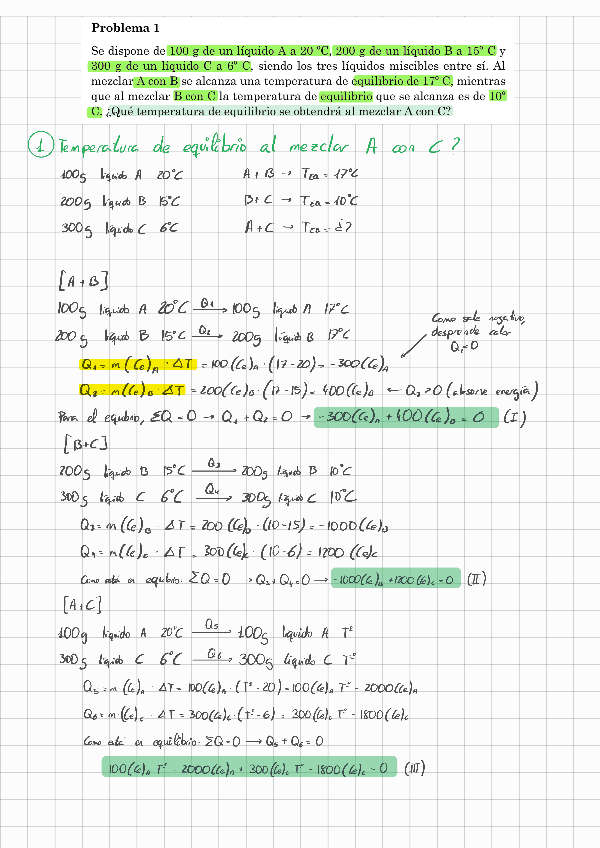 Problema 1
Se dispone de 100 g de un líquido A a 20 ºC, 200 g de un líquido B a 15º C y
300 g de un líquido C a 6º C, siendo los tres líquidos miscibles entre sí. Al
mezclar A con B se alcanza una temperatura de equilibrio de 17º C, mientras
que al mezclar B con C la temperatura de equilibrio que se alcanza es de 10º
C. ¿Qué temperatura de equilibrio se obtendrá al mezclar A con C?
1 Temperatura de equilibrio al mezclar A con C ?
100g líquido A 20ºC A + B → TEQ = 17ºC
200g líquido B 15ºC B + C → TEQ = 10ºC
300g líquido C 6ºC A + C → TEQ = ¿?
[A + B]
100g líquido A 20ºC Q1→ 100g líquido A 17ºC
200g líquido B 15ºC Q2→ 200g líquido B 17ºC
Como sale negativo,
desprende calor
Q1<0
Q1 = m (Ce)A · ΔT = 100(Ce)A · (17-20) = -300(Ce)A
Q2 = m (Ce)B · ΔT = 200(Ce)B · (17-15) = 400(Ce)B ← Q2>0 (absorve energía)
Para el equilibrio, ΣQ = 0 → Q1 + Q2 = 0 → -300(Ce)A + 400(Ce)B = 0 (I)
[B+C]
200g líquido B 15ºC Q3→ 200g líquido B 10ºC
300g líquido C 6ºC Q4→ 300g líquido C 10ºC
Q3 = m (Ce)B · ΔT = 200 (Ce)B · (10-15) = -1000(Ce)B
Q4 = m (Ce)C · ΔT = 300(Ce)C · (10-6) = 1200 (Ce)C
Como está en equilibrio. ΣQ = 0 → Q3 + Q4 = 0 → -1000(Ce)B + 1200(Ce)C = 0 (II)
[A+C]
100g líquido A 20ºC Q5→ 100g líquido A Tª
300g líquido C 6ºC Q6→ 300g líquido C Tª
Q5 = m (Ce)A · ΔT = 100(Ce)A · (Tª - 20) = 100(Ce)A Tª - 2000(Ce)A
Q6 = m (Ce)C · ΔT = 300(Ce)C · (Tª - 6) = 300(Ce)C Tª - 1800(Ce)C
Como está en equilibrio. ΣQ = 0 → Q5 + Q6 = 0
100(Ce)A Tª - 2000(Ce)A + 300(Ce)C Tª - 1800(Ce)C = 0 (III)